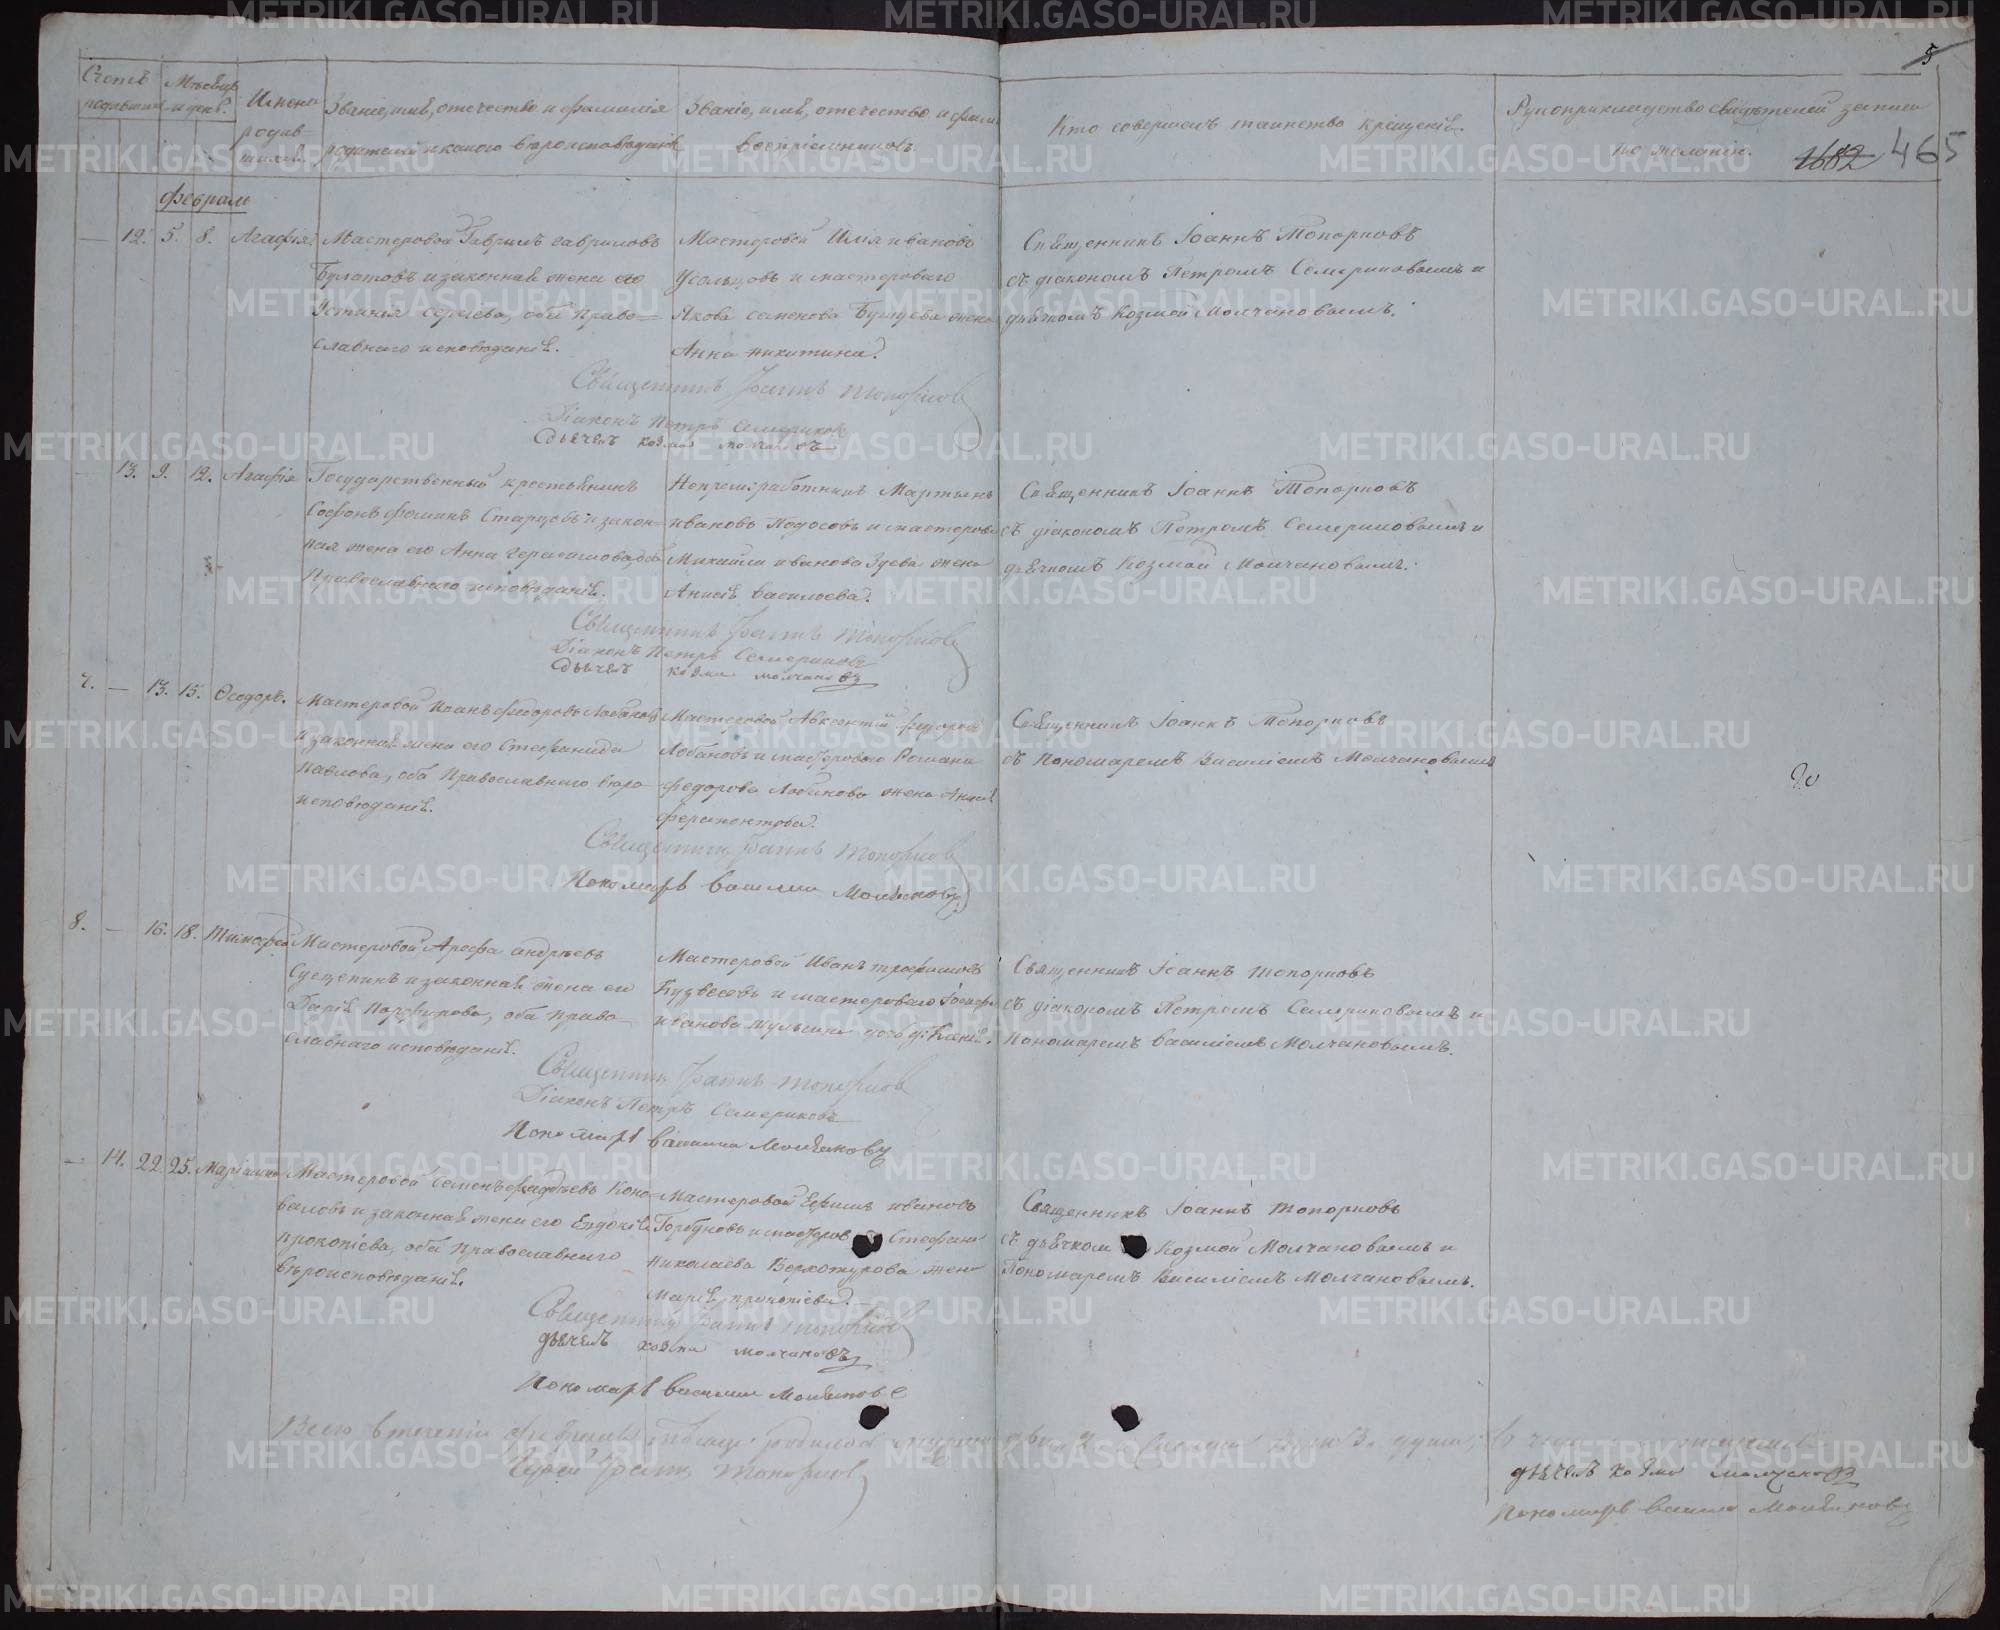 Счетъ родившихся
Мѣсяцъ и день.
Имена родив-шихся.
Званіе, имя, отечество и фамилія родителей и какого вѣроисповѣданія
Званіе, имя, отечество и фам. воспріемниковъ.
Кто совершалъ таинство крещенія.
Рукоприкладство свидѣтелей записи по желанію.
5
1682 465
Февраль
— 12. 5. 8. Агафія
Мастеровой Гавріилъ Гавриловъ
Булатовъ и законная жена его
Устинія Сергіева, оба Право=
славнаго исповѣданія.
Мастеровой Илія Ивановъ
Усольцовъ и мастероваго
Якова Семенова жена
Анна Никитина.
Священникъ Іоаннъ Топорковъ
съ діакономъ Петромъ Семериковымъ и
дьячкомъ Козмой Молчановымъ.
Священникъ Іоаннъ Топорковъ
Діаконъ Петръ Семериковъ
дьячекъ козма молчановъ
— 13. 9. 12. Агафія
Государственный крестьянинъ
Софонъ Фоминъ Старцовъ и закон=
ная жена его Анна Герасимова, оба
Православнаго исповѣданія.
Непрем: работникъ Мартынъ
Ивановъ Подосовъ и мастеров
Михаила Иванова Зуева жена
Анисія Васильева.
Священникъ Іоаннъ Топорковъ
съ діакономъ Петромъ Семериковымъ и
дьячкомъ Козмой Молчановымъ.
Священникъ Іоаннъ Топорковъ
Діаконъ Петръ Семериковъ
дьячекъ козма молчановъ
7. — 13. 15. Ѳеодоръ.
Мастеровой Иоанъ Федоровъ Лобановъ
и законная жена его Стефанида
Павлова, оба Православнаго вѣро
исповѣданія.
Мастеровой Авксентій Федоровъ
Лобановъ и мастероваго Романа
Федорова Лобанова жена
Ферапонтова.
Священникъ Іоаннъ Топорковъ
съ Пономаремъ Василіемъ Молчановымъ
Священникъ Іоаннъ Топорковъ
Пономарь Василій Молчановъ
8. — 16. 18. Тимофей
Мастеровой Арефа Андреевъ
и законная жена его
Дарія Порфирова, оба право
славнаго исповѣданія.
Мастеровой Иванъ Трофимовъ
и мастероваго Іосифа
Иванова дочь дѣ: Ксенія.
Священникъ Іоаннъ Топорковъ
съ діакономъ Петромъ Семериковымъ и
Пономаремъ Василіемъ Молчановымъ.
Священникъ Іоаннъ Топорковъ
Діаконъ Петръ Семериковъ
Пономарь Василій Молчановъ
— 14. 22. 25. Маріамна
Мастеровой Семенъ Фаддѣевъ Коно=
валовъ и законная жена его Евдокія
Прокопіева, оба Православнаго
вѣроисповѣданія.
Мастеровой Ефимъ Ивановъ
Горбуновъ и мастеров Стефана
Николаева Верхотурова жена
Марія Прокопіева.
Священникъ Іоаннъ Топорковъ
съ дьячком Козмой Молчановымъ и
Пономаремъ Василіемъ Молчановымъ.
Священникъ Іоаннъ Топорковъ
дьячекъ козма молчановъ
Пономарь Василій Молчановъ
Всего въ теченіи Февраля мѣсяца родилось муж два 2 и женска три 3. души, въ
Іерей Іоаннъ Топорковъ
дьячекъ козма молчановъ
Пономарь Василій Молчановъ
METRIKI.GASO-URAL.RU